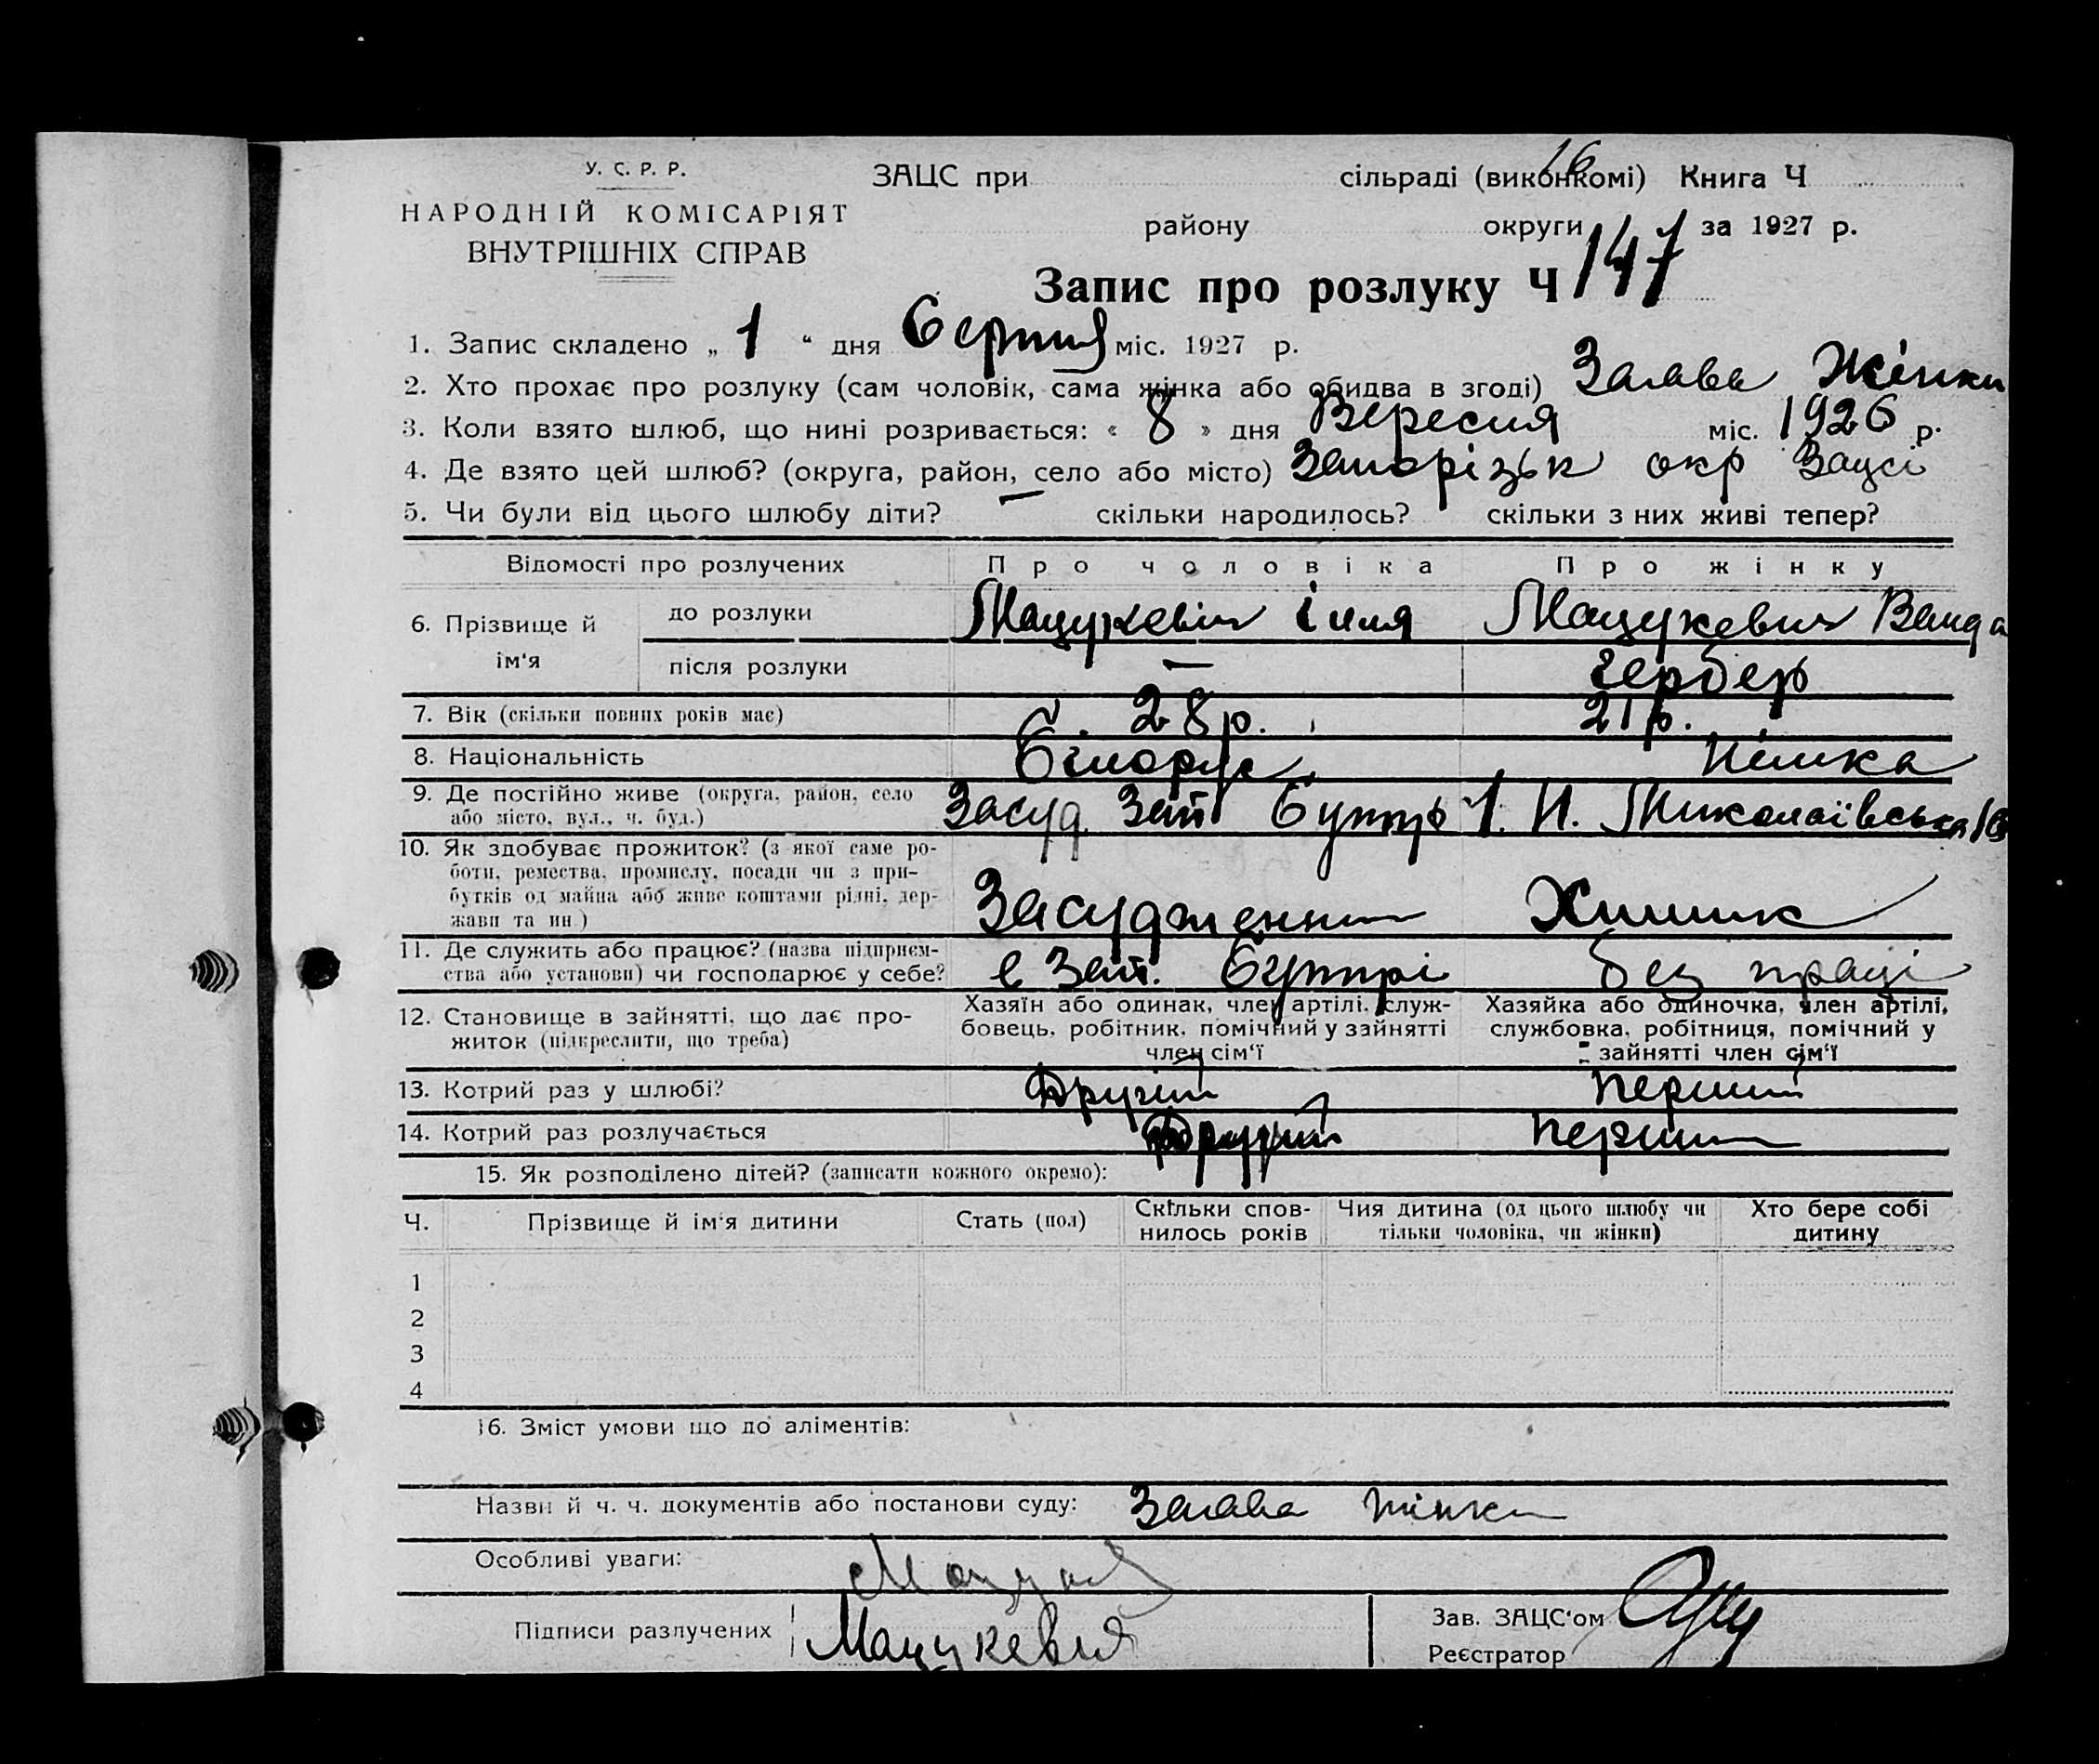 У. С. Р. Р.
НАРОДНІЙ КОМІСАРІЯТ
ВНУТРІШНІХ СПРАВ
ЗАЦС при сільраді (виконкомі) Книга Ч
16
району округи за 1927 р.
Запис про розлуку Ч 147
1. Запис складено „ 1 “ дня Серпня міс. 1927 р.
2. Хто прохає про розлуку (сам чоловік, сама жінка або обидва в згоді) Заява Жінки
3. Коли взято шлюб, що нині розривається: « 8 » дня Вересня міс. 1926 р.
4. Де взято цей шлюб? (округа, район, село або місто) Запорізьк окр Зацсі
5. Чи були від цього шлюбу діти? — скільки народилось? скільки з них живі тепер?
Відомості про розлучених Про чоловіка Про жінку
6. Прізвище й ім‘я до розлуки Мацукевич Ілля Мацукевич Ванда
після розлуки — Гербер
7. Вік (скільки повних років має) 28 р. 21 р.
8. Національність Білорус Німка
9. Де постійно живе (округа, район, село
або місто, вул., ч. буд.) Засуд. Зап Буппр Миколаївська
10. Як здобуває прожиток? (з якої саме ро-
боти, ремества, промислу, посади чи з при-
бутків од майна або живе коштами рідні, дер-
жави та ин.) Засуджений Химик
11. Де служить або працює? (назва підприєм-
ства або установи) чи господарює у себе? в Зап. Буппрі без праці
12. Становище в зайнятті, що дає про-
житок (підкреслити, що треба)
Хазяїн або одинак, член артілі, служ-
бовець, робітник, помічний у зайнятті
член сім‘ї
Хазяйка або одиночка, член артілі,
службовка, робітниця, помічний у
зайнятті член сім‘ї
13. Котрий раз у шлюбі? Другий Перший
14. Котрий раз розлучається Другий Перший
15. Як розподілено дітей? (записати кожного окремо):
Ч. Прізвище й ім‘я дитини Стать (пол) Скільки спов-
нилось років Чия дитина (од цього шлюбу чи
тільки чоловіка, чи жінки) Хто бере собі
дитину
1
2
3
4
16. Зміст умови що до аліментів:
Назви й ч. ч. документів або постанови суду: Заява жінки
Особливі уваги:
Підписи разлучених Мацукевич
Зав. ЗАЦС‘ом
Реєстратор